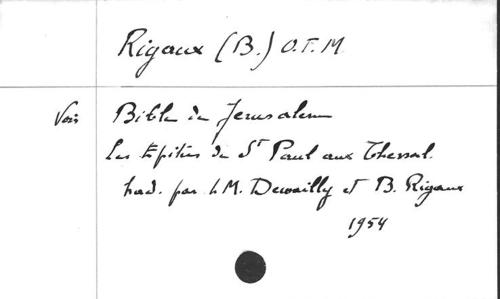 Rigaux (B.) O.F.M.
Voir Bible de Jerusalem
Les Epitres de St Paul aux Thessal.
trad. par L M. Dewailly et B. Rigaux
1954